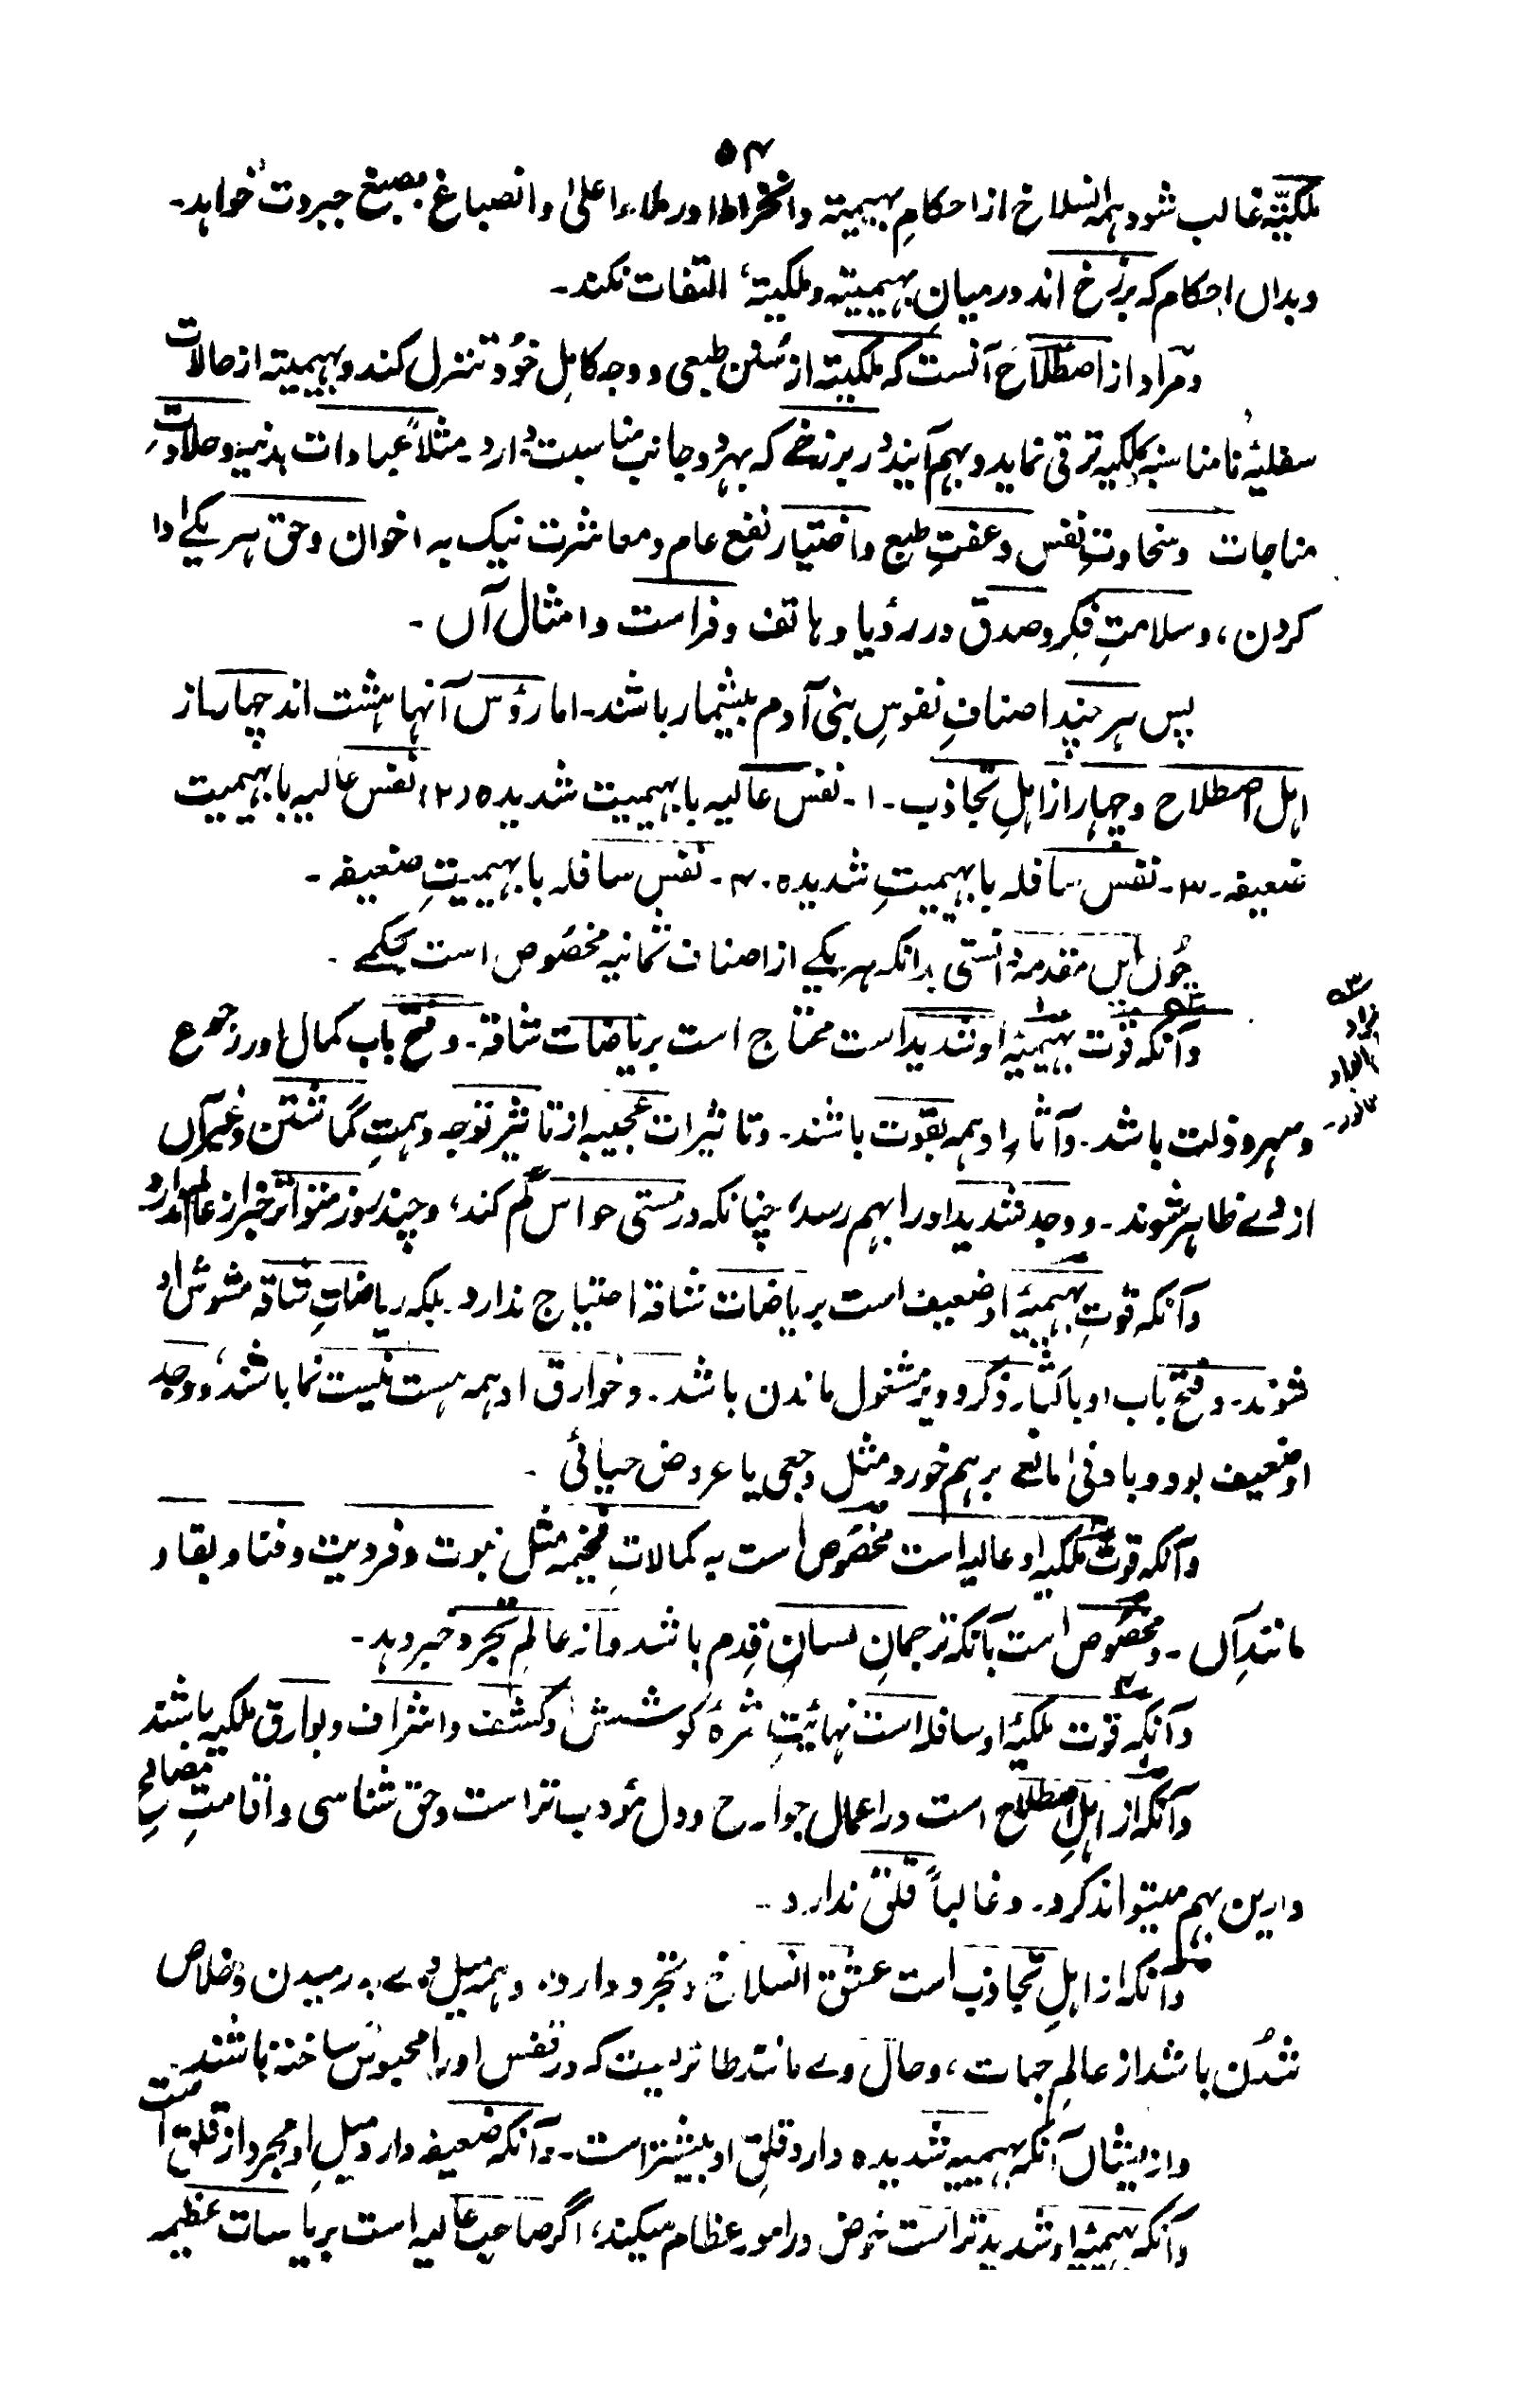 ۵۴
ملکیّتہ غالب شود ہمہ انسلاخ از احکامِ بہیمیتہ وانخراط اودر ملاء اعلیٰ وانصباغ بصبغ جبروت خواہد۔
وبداں احکام کہ برزخ اند درمیانِ بہیمیتہ وملکیتہ، التفات نکند۔
ومراد از اصطلاح آنست کہ ملکیتہ از سُنن طبعی و وجہ کامِل خُود تنزل کند وبہیمیتہ از حالات
سفلیۂ نامناسبہ بملکیہ ترقی نماید وبہم آیند در برزخے کہ بہر دو جانب مناسبت دارد۔ مثلاً عبادات بدنیہ وحلاوتِ
مناجات وسخاوتِ نفس وعفتِ طبع واختیار نفع عام ومعاشرت نیک بہ اخوان وحق ہر یکے ادا
کردن، وسلامتِ فکر وصدق در رؤیا وہاتف وفراست وامثال آں۔
پس ہر چند اصنافِ نفوسِ بنی آدم بیشمار باشند۔ اما رؤس آنہا ہشت اند چہار از
اہل اصطلاح وچہار از اہلِ تجاذب۔ ۱۔ نفس عالیہ با بہیمیت شدیدہ (۲) نفس عالیہ با بہیمیت
ضعیفہ۔ ۳۔ نفس سافلہ با بہیمیتِ شدیدہ۔ ۴۔ نفس سافلہ با بہیمیتِ ضعیفہ۔
چُوں ایں مقدمہ دانستی بدانکہ ہر یکے از اصناف ثمانیہ مخصُوص است بحکمے۔
وآنکہ قوت بہیمیۂ او شدید است محتاج است بریاضات شاقہ۔ وفتح باب کمال اودر جوع
وسہر وذلت باشد۔ وآثار او ہمہ بقوت باشند۔ وتاثیرات عجیبہ از تاثیر توجہ وہمتِ گماشتن وغیر آں
از وے ظاہر شوند۔ ووجد شدید اورا بہم رسد، چنانکہ در مستی حواس گم کند، وچند روز متواتر خبر از عالم ندارد
وآنکہ قوتِ بہیمیۂ او ضعیف است بریاضات شاقہ احتیاج ندارد۔ بلکہ ریاضاتِ شاقہ مشوش او
شوند۔ وفتح باب او باکثار ذکر ودیر مشغول ماندن باشد۔ وخوارق او ہمہ ہست نیست نما باشند، ووجد
او ضعیف بود وبادنیٰ مانعے برہم خورد مثل وجعی یا عروض حیائی۔
وآنکہ قوت ملکیہ او عالیہ است مخصُوص است بہ کمالاتِ فخیمہ مثل نبوت وفردیت وفنا وبقا و
مانندِ آں۔ ومخصُوص است بآنکہ ترجمانِ لسانِ قدم باشد واز عالمِ تجرد خبر دہد۔
وآنکہ قوت ملکیۂ او سافلہ است نہائیتِ ثمرۂ کوشش او کشف واشراف وبوارق ملکیہ باشند
وآنکہ از اہلِ اصطلاح است در اعمال جوارح ودل مؤدب تر است وحق شناسی واقامتِ مصالحِ
دارین بہم میتواند کرد۔ وغالباً قلق ندارد۔
وآنکہ از اہلِ تجاذب است عشق انسلاخ وتجرد دارد۔ وہمہ میل وے بہ رمیدن وخلاص
شُدن باشد از عالم جہات، وحال وے مانند طائریست کہ در قفس اورا محبوس ساختہ باشند۔
واز ایشاں آنکہ بہیمیہ شدیدہ دارد قلقِ او بیشتر است۔ وآنکہ ضعیفہ دارد میلِ او مجرد از قلق است
وآنکہ بہیمیۂ او شدید تر است خوض در امور عظام میکند، اگر صاحب عالیہ است بریاسات عظیمہ